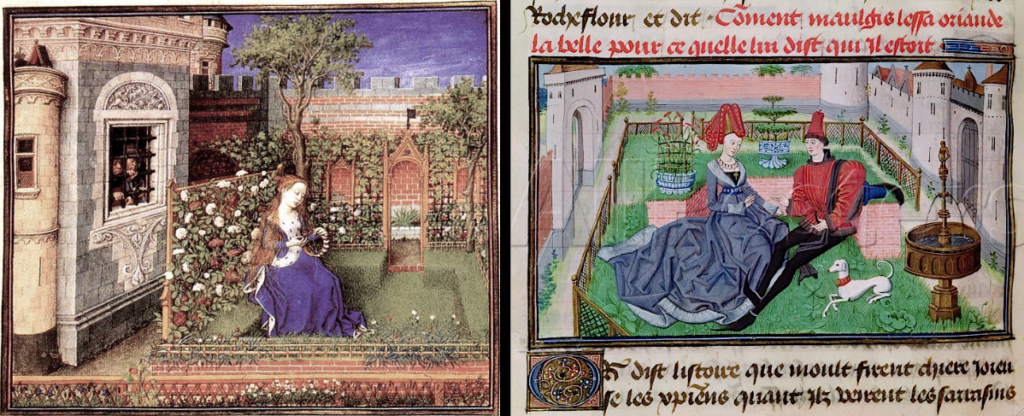 Rocheflour et dit · Coment maulgis lessa oriande
la belle pour ce quelle lui dist qui il estoit ·
Or dist listoire que moult firent chiere joieu
se les xpiens quant ilz veirent les sarrasins